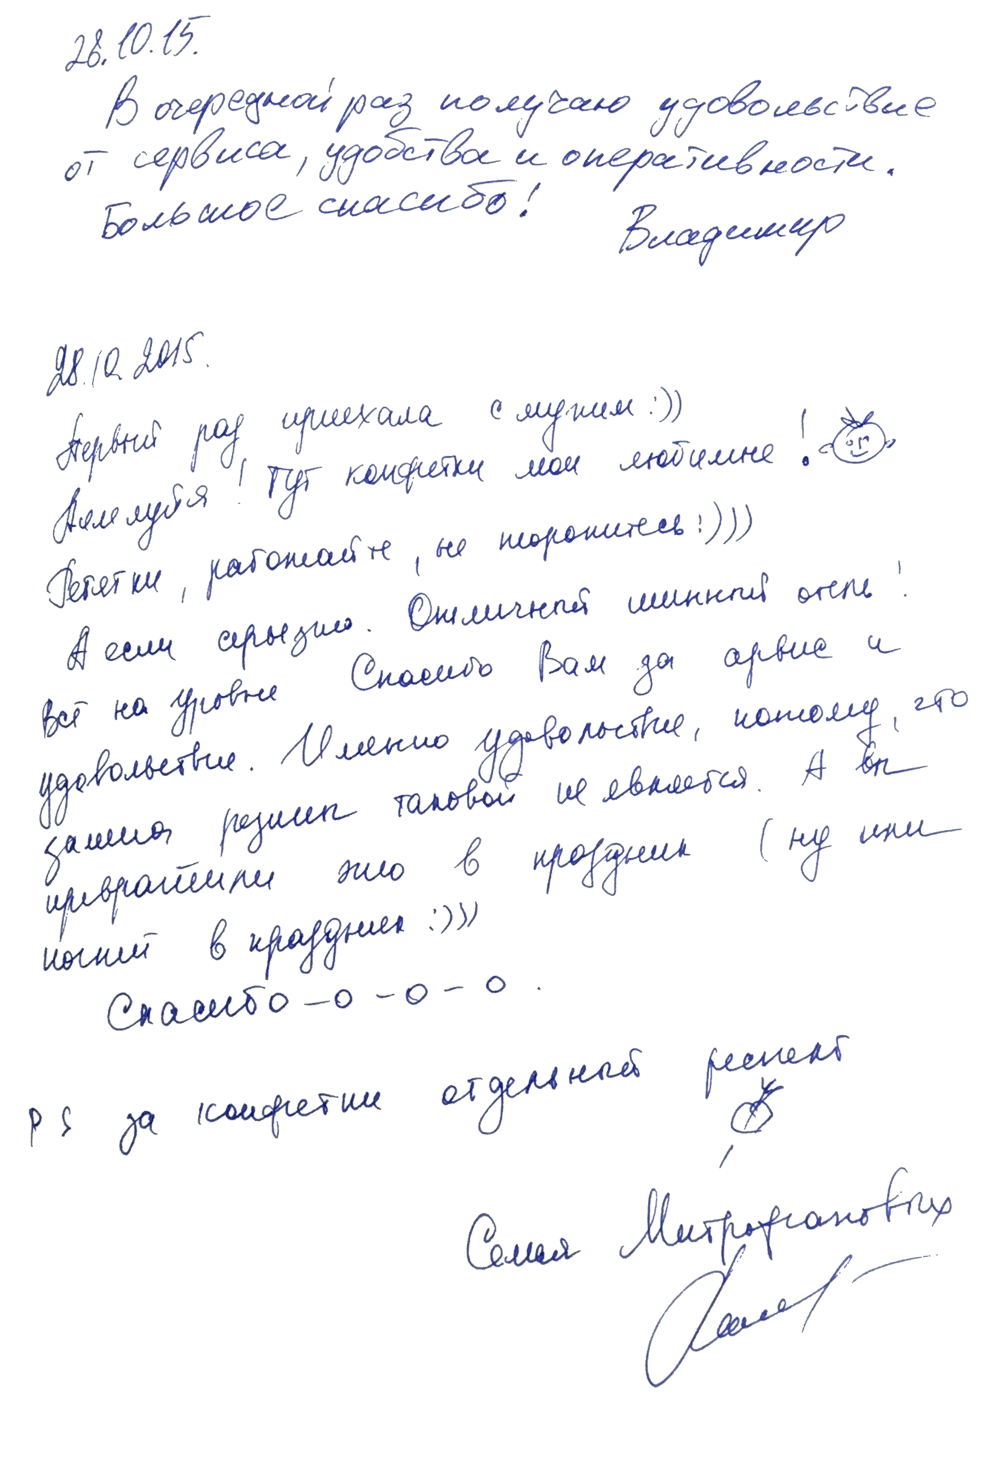 28.10.15.
В очередной раз получаю удовольствие
от сервиса, удобства и оперативности.
Большое спасибо!
Владимир
28.10.2015.
Первый раз приехала с мужем :))
Аллелуйя! Тут конфетки мои любимые!
Ребятки, работайте, не торопитесь :)))
А если серьезно. Отличный шинный отель!
Всё на уровне Спасибо Вам за сервис и
удовольствие. Именно удовольствие, потому, что
замена резины таковой не является. А вы
превратили это в праздник (ну или
почти в праздник :)))
Спасибо – о – о – о.
PS за конфетки отдельный респект
Семья Митрофановых